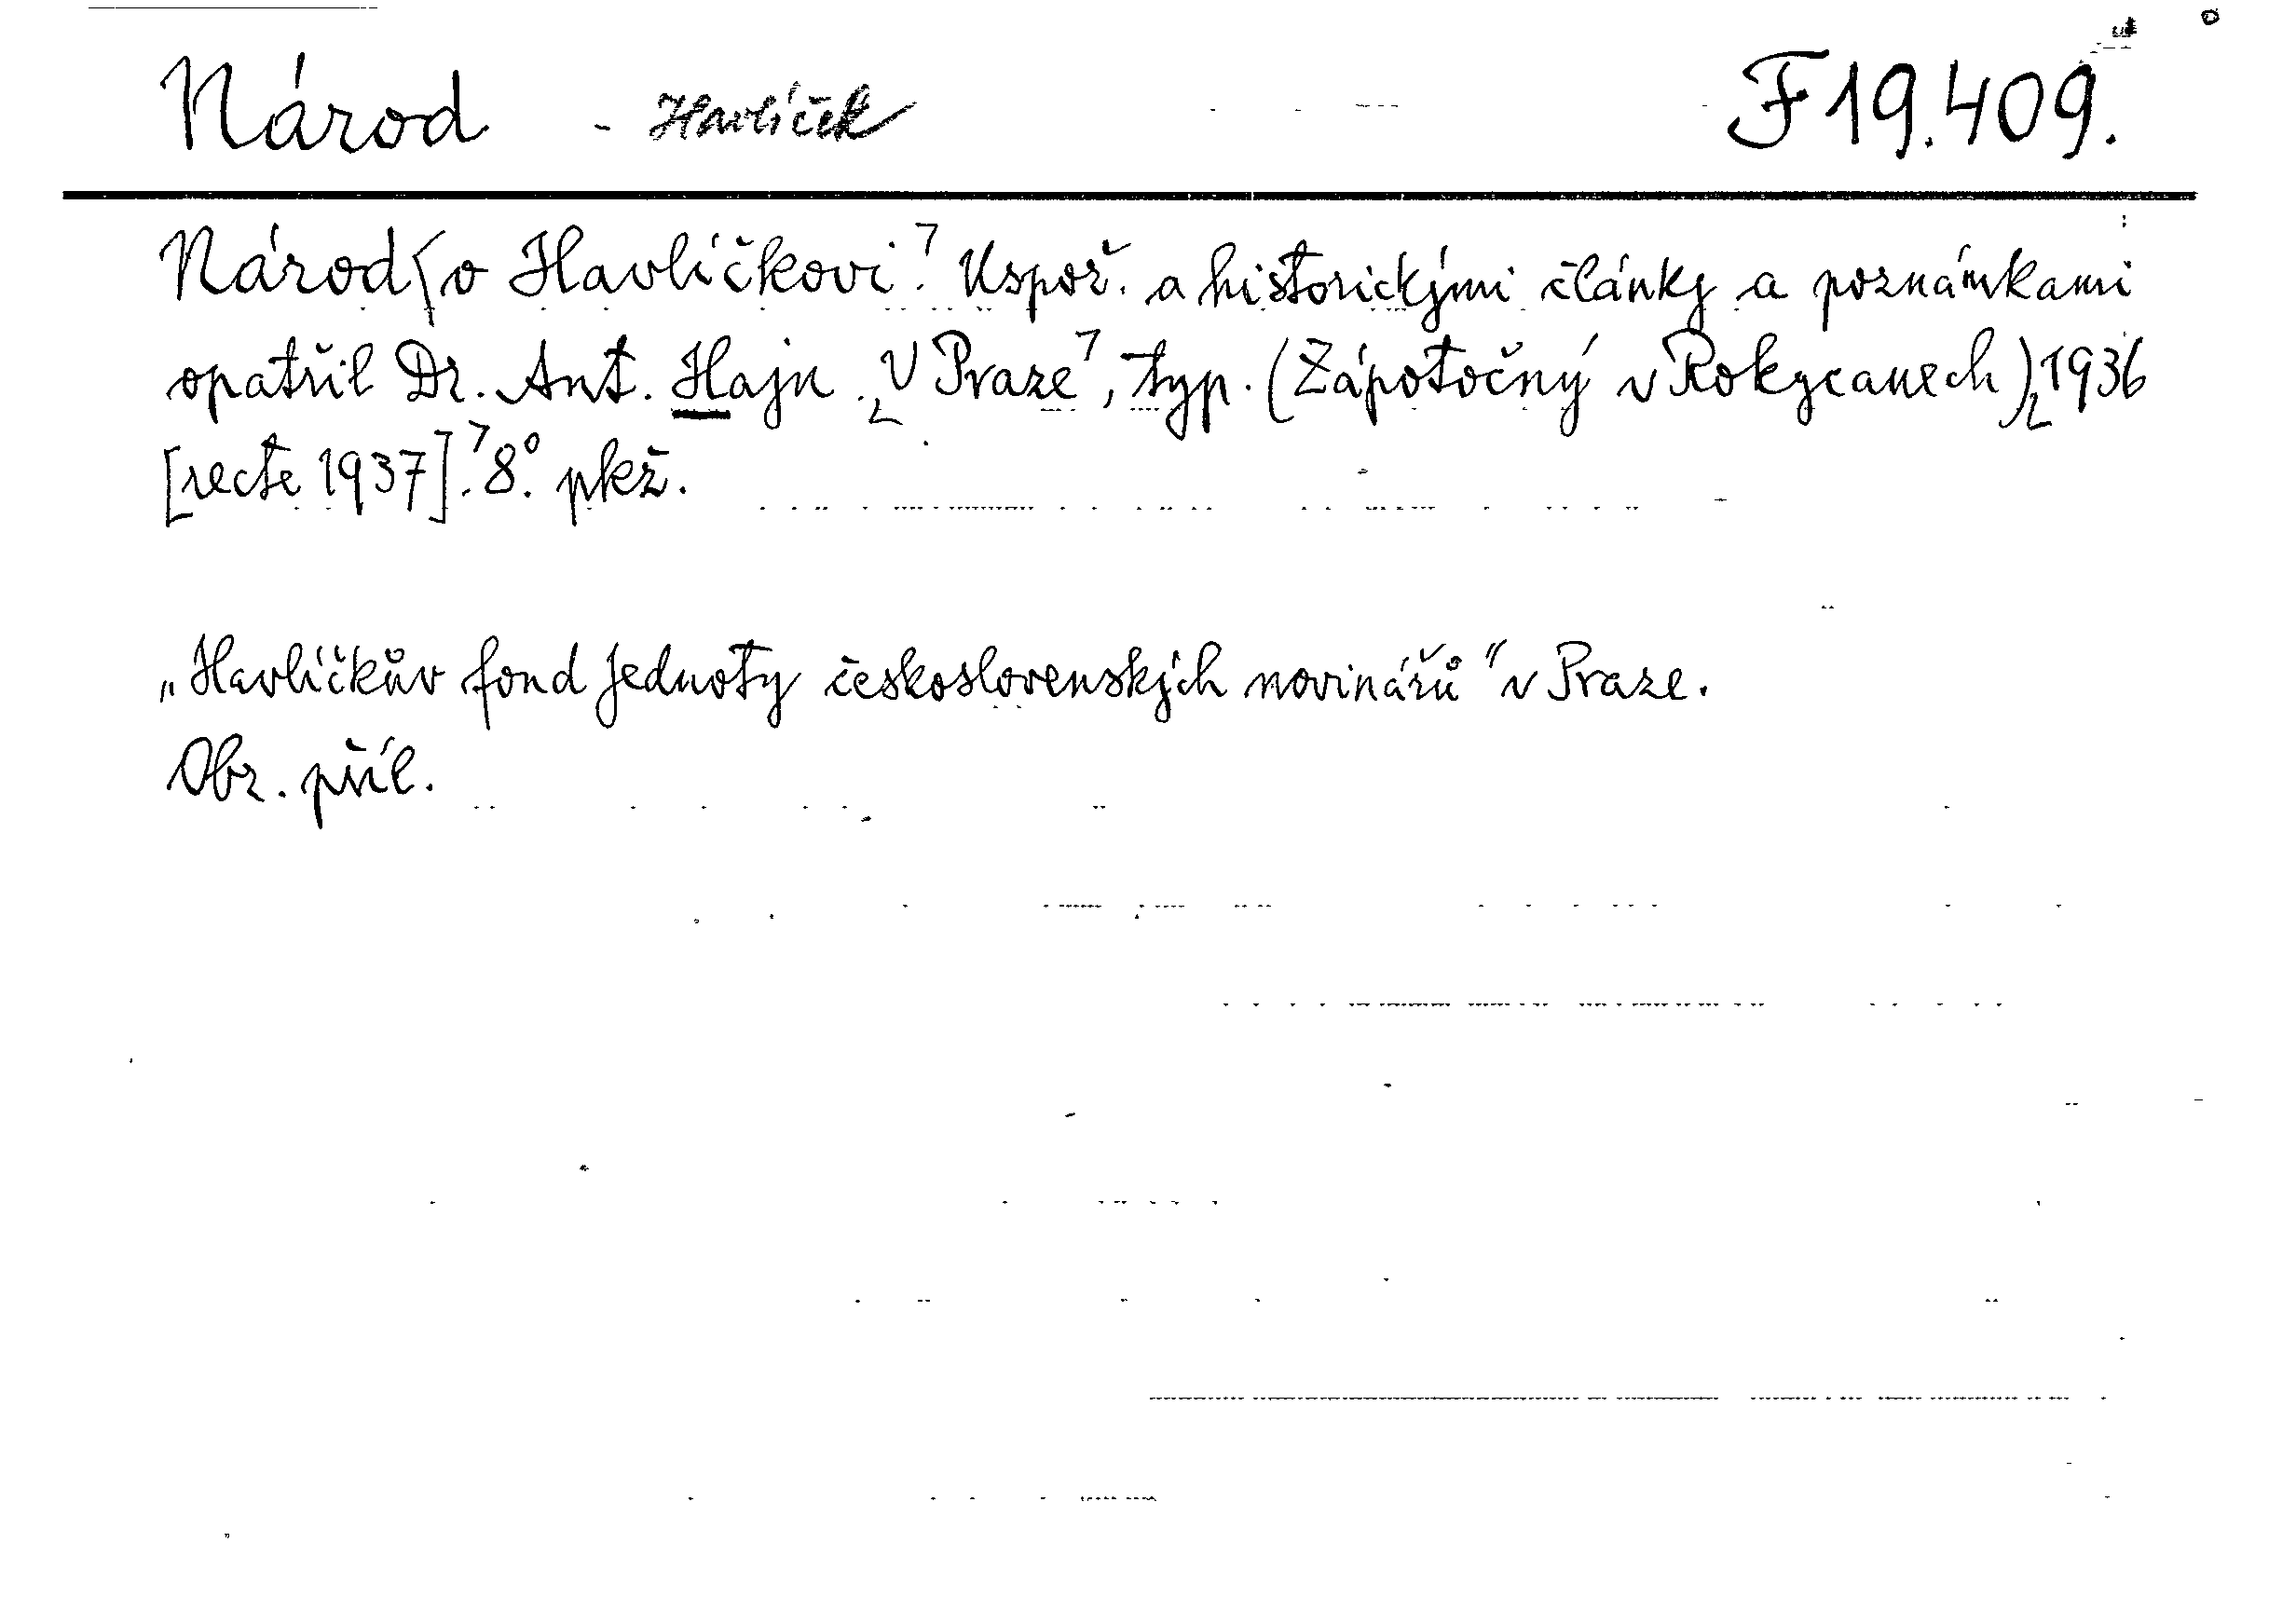 Národ - Havlíček F 19.409.
Národ o Havlíčkovi. Uspoř. a historickými články a poznámkami
opatřil Dr. Ant. Hajn. V Praze, typ. (Zápotočný v Rokycanech) 1936
[recte 1937]. 8°. pkž.
„Havlíčkův fond Jednoty československých novinářů" v Praze.
Obr. příl.